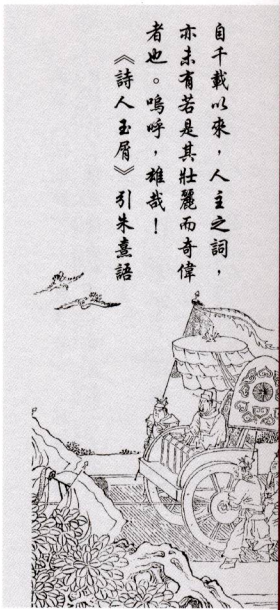 自千載以來，人主之詞，
亦未有若是其壯麗而奇偉
者也。嗚呼，雄哉！
《詩人玉屑》引朱熹語